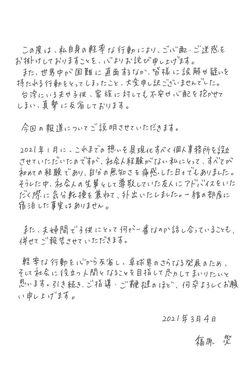 この度は、私自身の軽率な行動により、ご心配・ご迷惑を
お掛けしておりますことを、心よりお詫び申し上げます。
また、世界中が困難に直面するなか、皆様に誤解や疑いを
持たれる行動をとってしまったこと、大変申し訳ございませんでした。
台湾にいる夫や子供、家族に対しても不安や心配を抱かせて
しまい、真摯に反省しております。
今回の報道についてご説明させていただきます。
2021年1月に、これまでの想いを具現化すべく個人事務所を設立
させていただいたのですが、社会人経験がない私にとって、すべてが
初めての経験であり、自分の無知さを痛感した日々でもありました。
そうした中、社会人の先輩としても尊敬していた友人にアドバイスをいた
だく際に気分転換を兼ねて、外出いたしました。一緒の部屋に
宿泊した事実はありません。
また、夫婦間で子供にとって何が一番なのか話し合っていることも、
併せてご報告させていただきます。
軽率な行動を心から反省し、卓球界のさらなる発展のため、
そして社会に役立つ人間となることを目指して尽力してまいりたいと
思います。引き続き、ご指導・ご鞭撻のほど、何卒よろしくお願
い申し上げます。
2021年3月4日
福原 愛